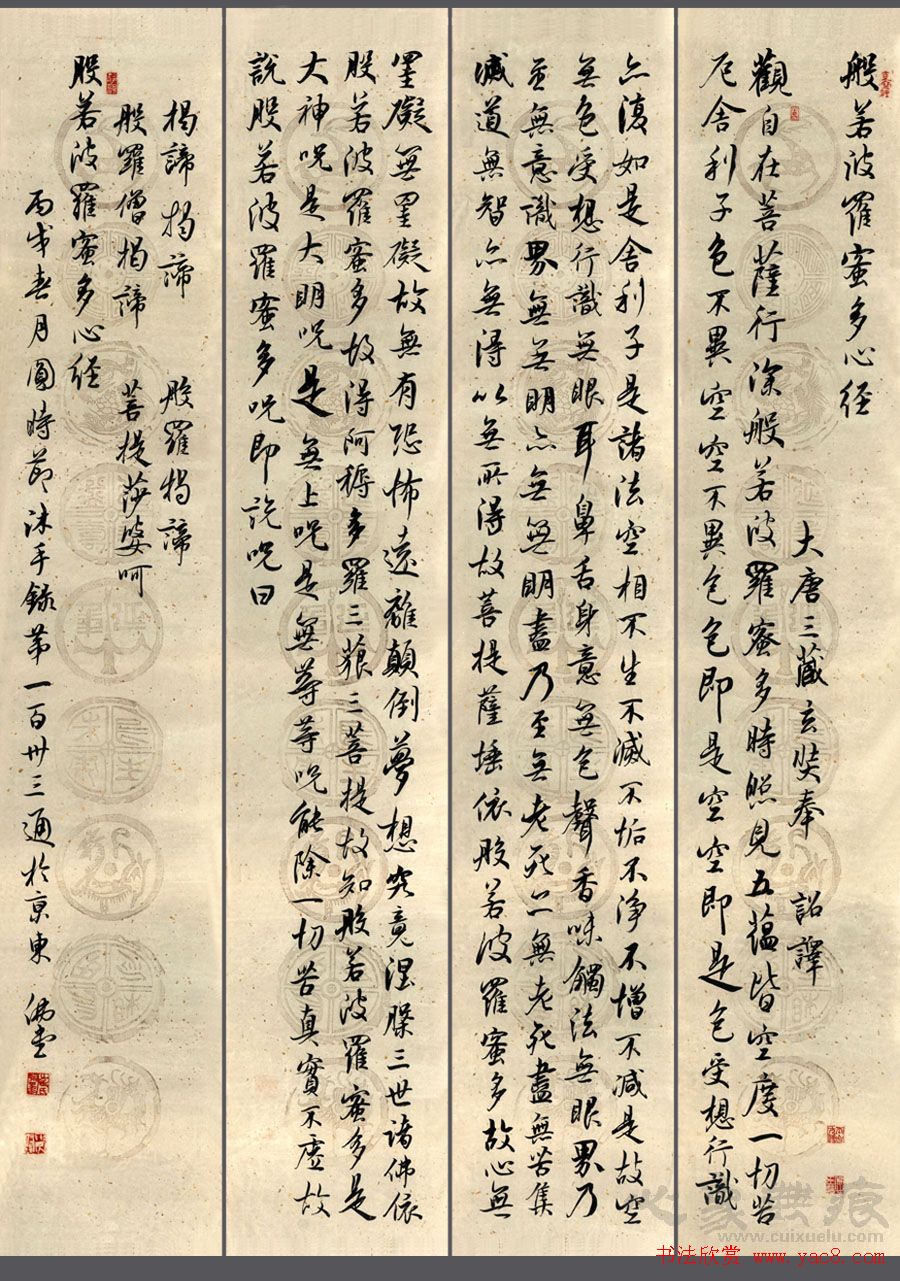 般若波羅蜜多心经
大唐三藏玄奘奉 詔譯
觀自在菩薩行深般若波羅蜜多時照見五蘊皆空度一切苦
厄舍利子色不異空空不異色色即是空空即是色受想行識
亦復如是舍利子是諸法空相不生不滅不垢不净不增不減是故空
無色受想行識無眼耳鼻舌身意無色聲香味觸法無眼界乃
至無意識界無無明亦無無明盡乃至無老死亦無老死盡無苦集
滅道無智亦無得以無所得故菩提薩埵依般若波羅蜜多故心無
罣礙無罣礙故無有恐怖遠離顛倒夢想究竟涅槃三世諸佛依
般若波羅蜜多故得阿耨多羅三藐三菩提故知般若波羅蜜多是
大神咒是大明咒是無上咒是無等等咒能除一切苦真實不虛故
說般若波羅蜜多咒即説咒曰
揭諦揭諦 般羅揭諦
般羅僧揭諦 菩提莎婆呵
般若波羅蜜多心经
丙戌春月圓時節沐手錄第一百卅三通於京東
心象無痕
www.cuixuelu.com
书法欣赏 www.yac8.com